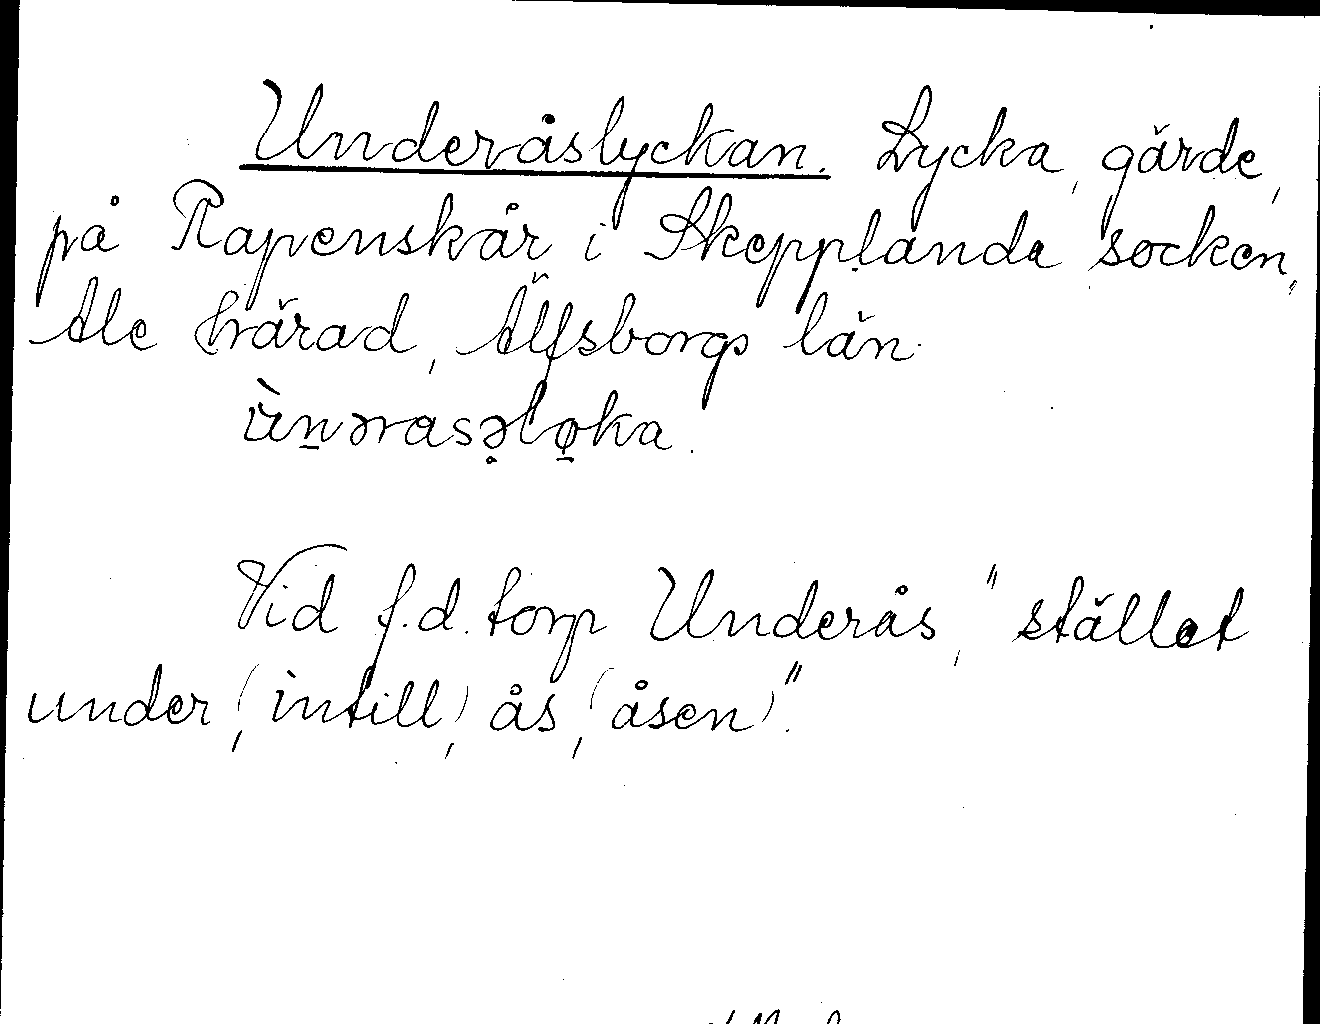 Underåslyckan. Lycka, gärde,
på Rapenskår i Skepplanda socken,
Ale härad, Älfsborgs län.
ùn̲ərasə̥lø̲ka.
Vid f.d. torp Underås, "stället
under (intill) ås (åsen)".